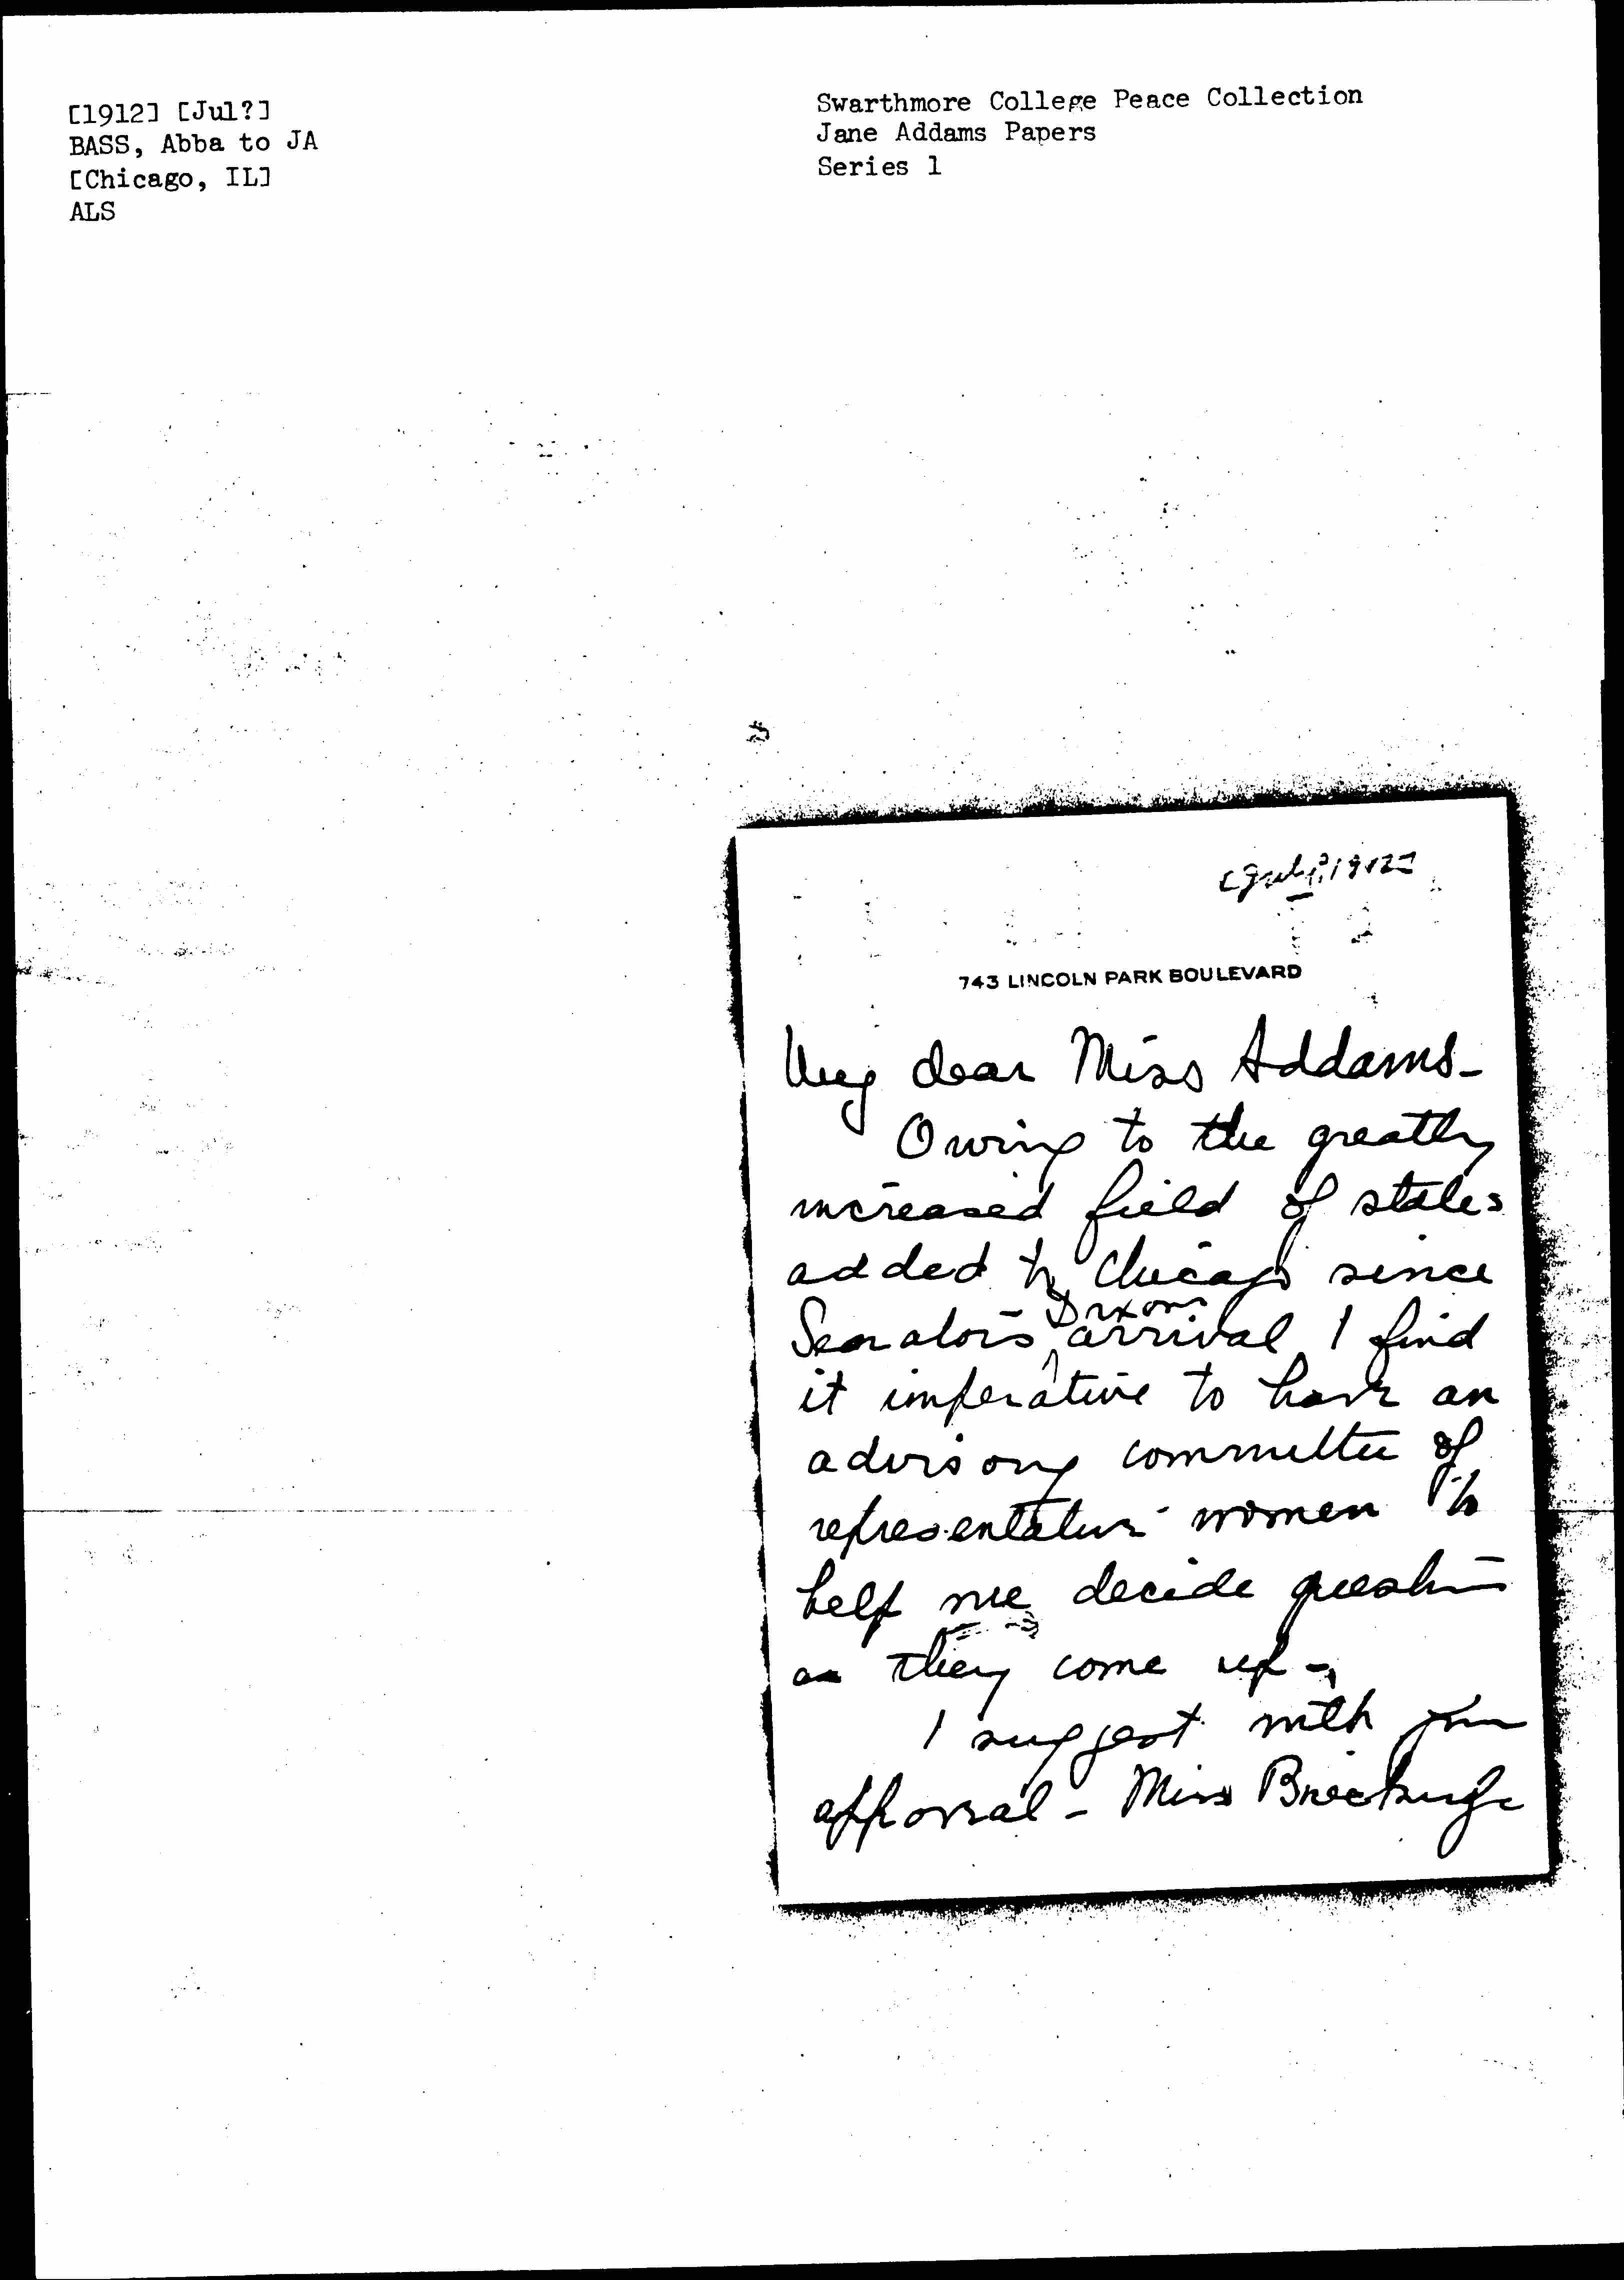 [1912] [Jul?]
BASS, Abba to JA
[Chicago, IL]
ALS
Swarthmore College Peace Collection
Jane Addams Papers
Series 1
[July? 1912]
743 LINCOLN PARK BOULEVARD
My dear Miss Addams-
Owing to the greatly
increased field of states
added to Chicago since
Dixons
Senators arrival I find
it imperative to have an
advisory committee of
representative women to
help me decide questions
as they come up-
I suggest with your
approval - Miss Breckinridge